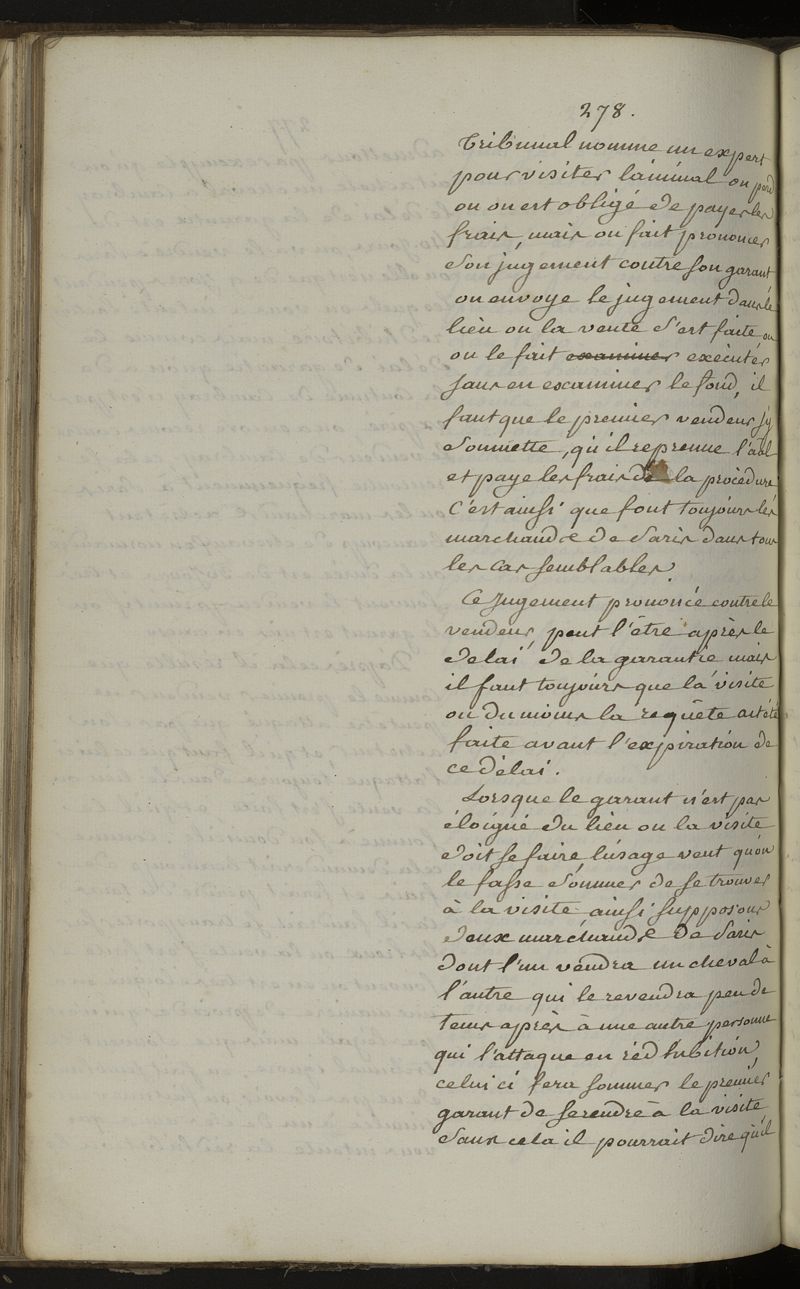 278.
Tribunal nomme un expert
pour visiter l'animal on perd
ou on est obligé de payer les
frais, mais on fait prononcer
son jugement contre son garant
on envoye le jugement dans le
lieu ou la vente s'est faite on
on le fait examiner exécuter
sans en examiner le fond, il
faut que le premier vendeur s'y
soumette, qu'il reprenne l'a⁠al
et paye les frais de la procédure
C'est ainsi que font toujours les
marchands de Paris dans tous
les cas semblables.
Ce Jugement prononcé contre le
vendeur, peut l'être après le
delai de la garantie mais
il faut toujours que la visite
ou du moins la requête ait été
faite avant l'expiration de
ce délai.
Lorsque le garant n'est pas
éloigné du lieu ou la visite
doit se faire l'usage veut qu'on
le fasse sommer de se trouver
à la visite ainsi supposons
deux marchands de Paris
dont l'un vendra un cheval à
l'autre qui le revendra peu de
tems après à une autre personne
qui l'attaque en rédhibition,
celui ci fera sommer le premier
garant de se rendre à la visite
sans cela il pourrait dire qu'il